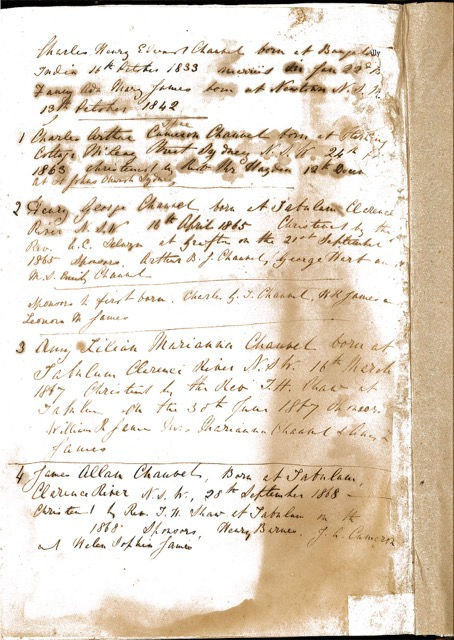 Charles Henry Edward Chauvel born at
India 16th October 1833 married in Jan 22nd
Fanny Ada Mary James born at Newtown N.S.W
13th October 1842
1 Charles Arthur Cameron Chauvel born at
College Sydney N.S.W 24th
1863 Christened by 12th
at St Johns Church Sydney
2 Henry George Chauvel born at Tabulam Clarence
River N.S.W 16th April 1865 Christened by the
Rev. A.C. Selwyn at Grafton on the 21st September
1865 Sponsors. Arthur B. J. Chauvel, George Hart
Emily Chauvel
Sponsors to first born. Charles G. T. Chauvel, James
Leonora M James
3 Amy Lilian Marianna Chauvel born at
Tabulam Clarence River N.S.W. 16th March
1867 Christened by the Rev. T.H. Shaw at
Tabulam on the 30th June 1867 Sponsors.
William R James Marianna Chauvel
James
4 James Allan Chauvel, Born at Tabulam,
Clarence River N.S.W., 28th September 1868 -
Christened by Rev. T. H. Shaw at Tabulam on the
1868 Sponsors, Henry Barnes. J. A. Cameron
Helen Sophia James